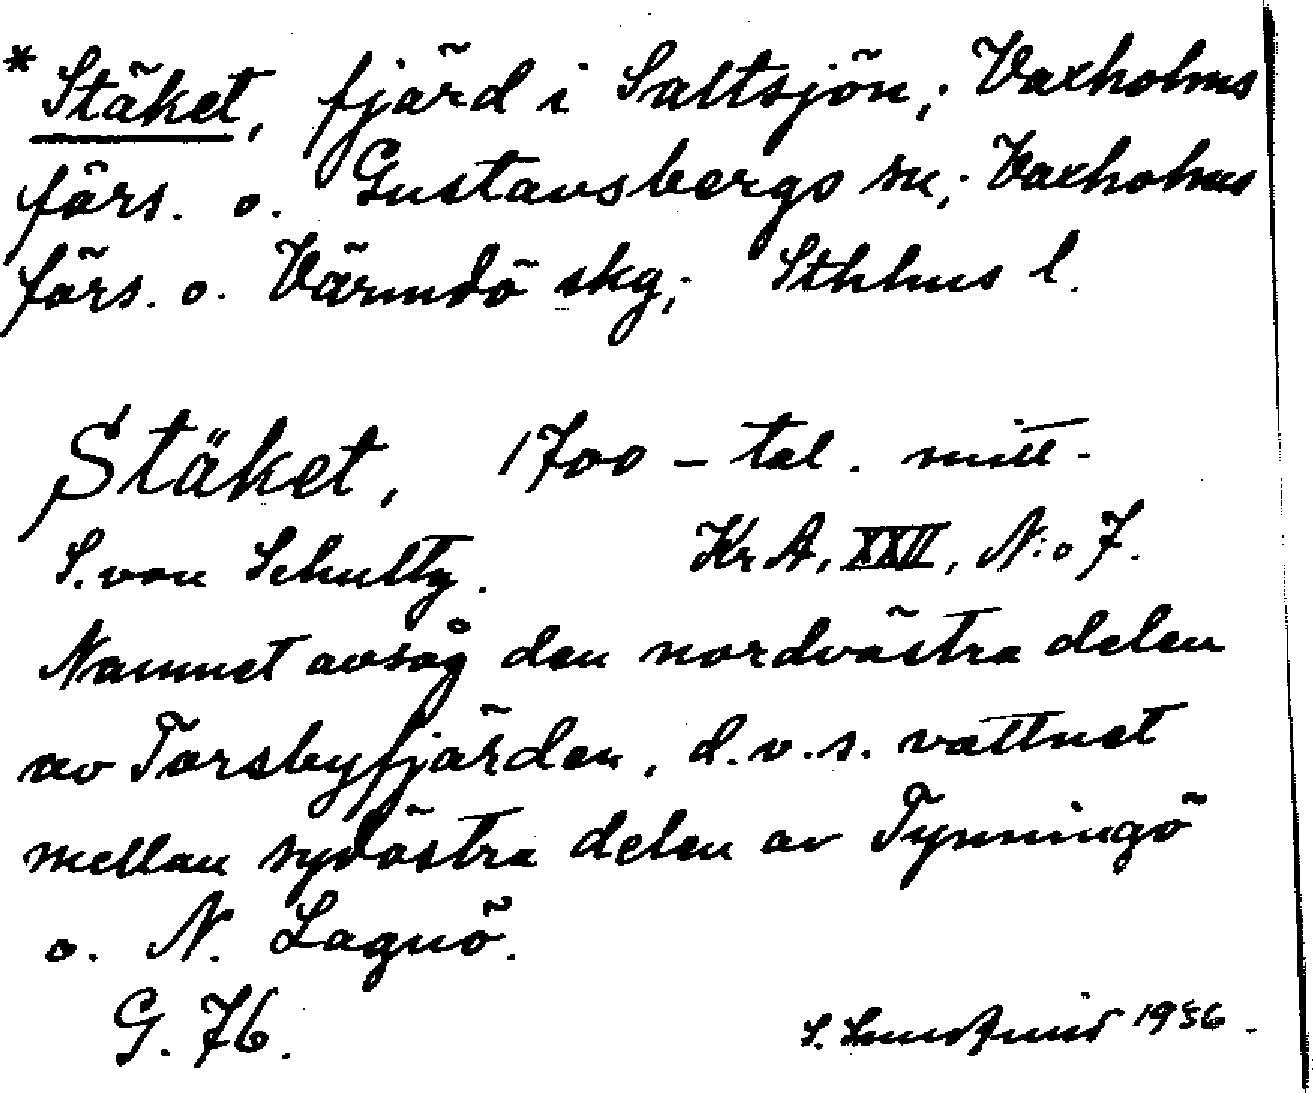 * Stäket, fjärd i Saltsjön; Vaxholms
förs. o. Gustavsbergs sn; Vaxholms
förs. o. Värmdö skg; Sthlms l.
Stäket, 1700-tal. mitt.
S. von Schultz. Kr A, XXII, N:o 7.
Namnet avsåg den nordvästra delen
av Torsbyfjärden, d.v.s. vattnet
mellan sydöstra delen av Tynningö
o. N. Lagnö.
G. 76.
S. 1936.